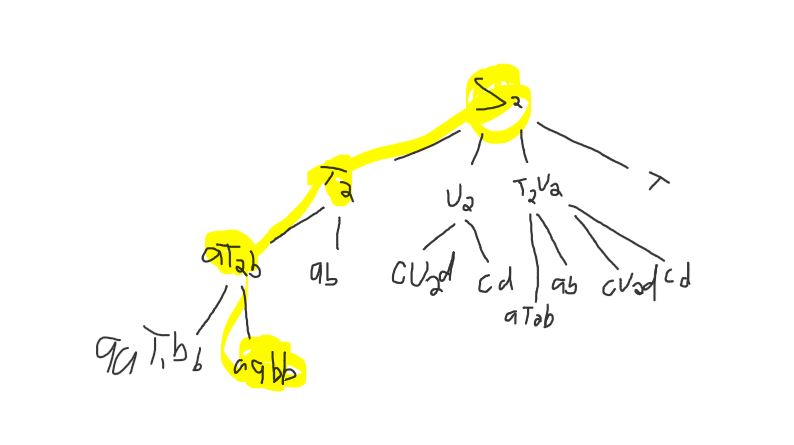 S₂
T₂
U₂
T₂U₂
aT₂b
ab
CU₂d
Cd
aT₂b
ab
CU₂d
Cd
aaT₁bb
aabb